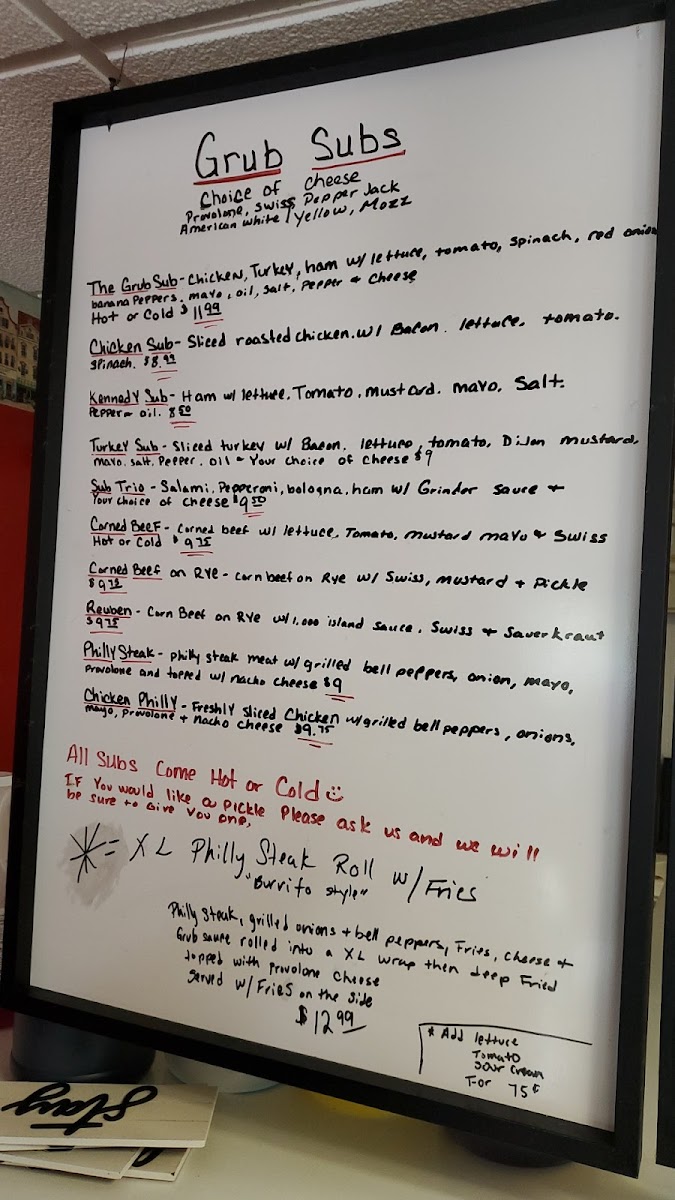 Grub Subs
Choice of Cheese
Provolone, Swiss, Pepper Jack
American White/Yellow, Mozz
The Grub Sub - Chicken, Turkey, ham w/ lettuce, tomato, spinach, red onion
banana Peppers, mayo, oil, salt, pepper + cheese
Hot or Cold $11.99
Chicken Sub - Sliced roasted chicken w/ Bacon, lettuce, tomato,
spinach. $8.99
Kennedy Sub - Ham w/ lettuce, Tomato, mustard, mayo, Salt,
Pepper + oil. 8.50
Turkey Sub - Sliced turkey w/ Bacon, lettuce, tomato, Dijon mustard,
mayo, salt, Pepper, oil + Your choice of cheese $9
Sub Trio - Salami, Pepperoni, bologna, ham w/ Grinder sauce +
Your choice of cheese $9.50
Corned Beef - Corned beef w/ lettuce, Tomato, mustard mayo + Swiss
Hot or Cold $9.75
Corned Beef on Rye - corn beef on Rye w/ Swiss, mustard + Pickle
$9.75
Reuben - Corn Beef on Rye w/ 1,000 island sauce, Swiss + Sauerkraut
$9.75
Philly Steak - Philly steak meat w/ grilled bell peppers, onion, mayo,
Provolone and topped w/ nacho cheese $9
Chicken Philly - Freshly sliced Chicken w/ grilled bell peppers, onions,
mayo, provolone + nacho cheese $9.75
All Subs Come Hot or Cold
If You would like a Pickle Please ask us and we will
be sure to Give You one.
= XL Philly Steak Roll w/ Fries
"Burrito style"
Philly Steak, grilled onions + bell peppers, Fries, Cheese +
Grub sauce rolled into a XL wrap then deep Fried
topped with Provolone Cheese
Served w/ Fries on the side
$12.99
* Add lettuce
Tomato
Sour Cream
For 75¢
Stay